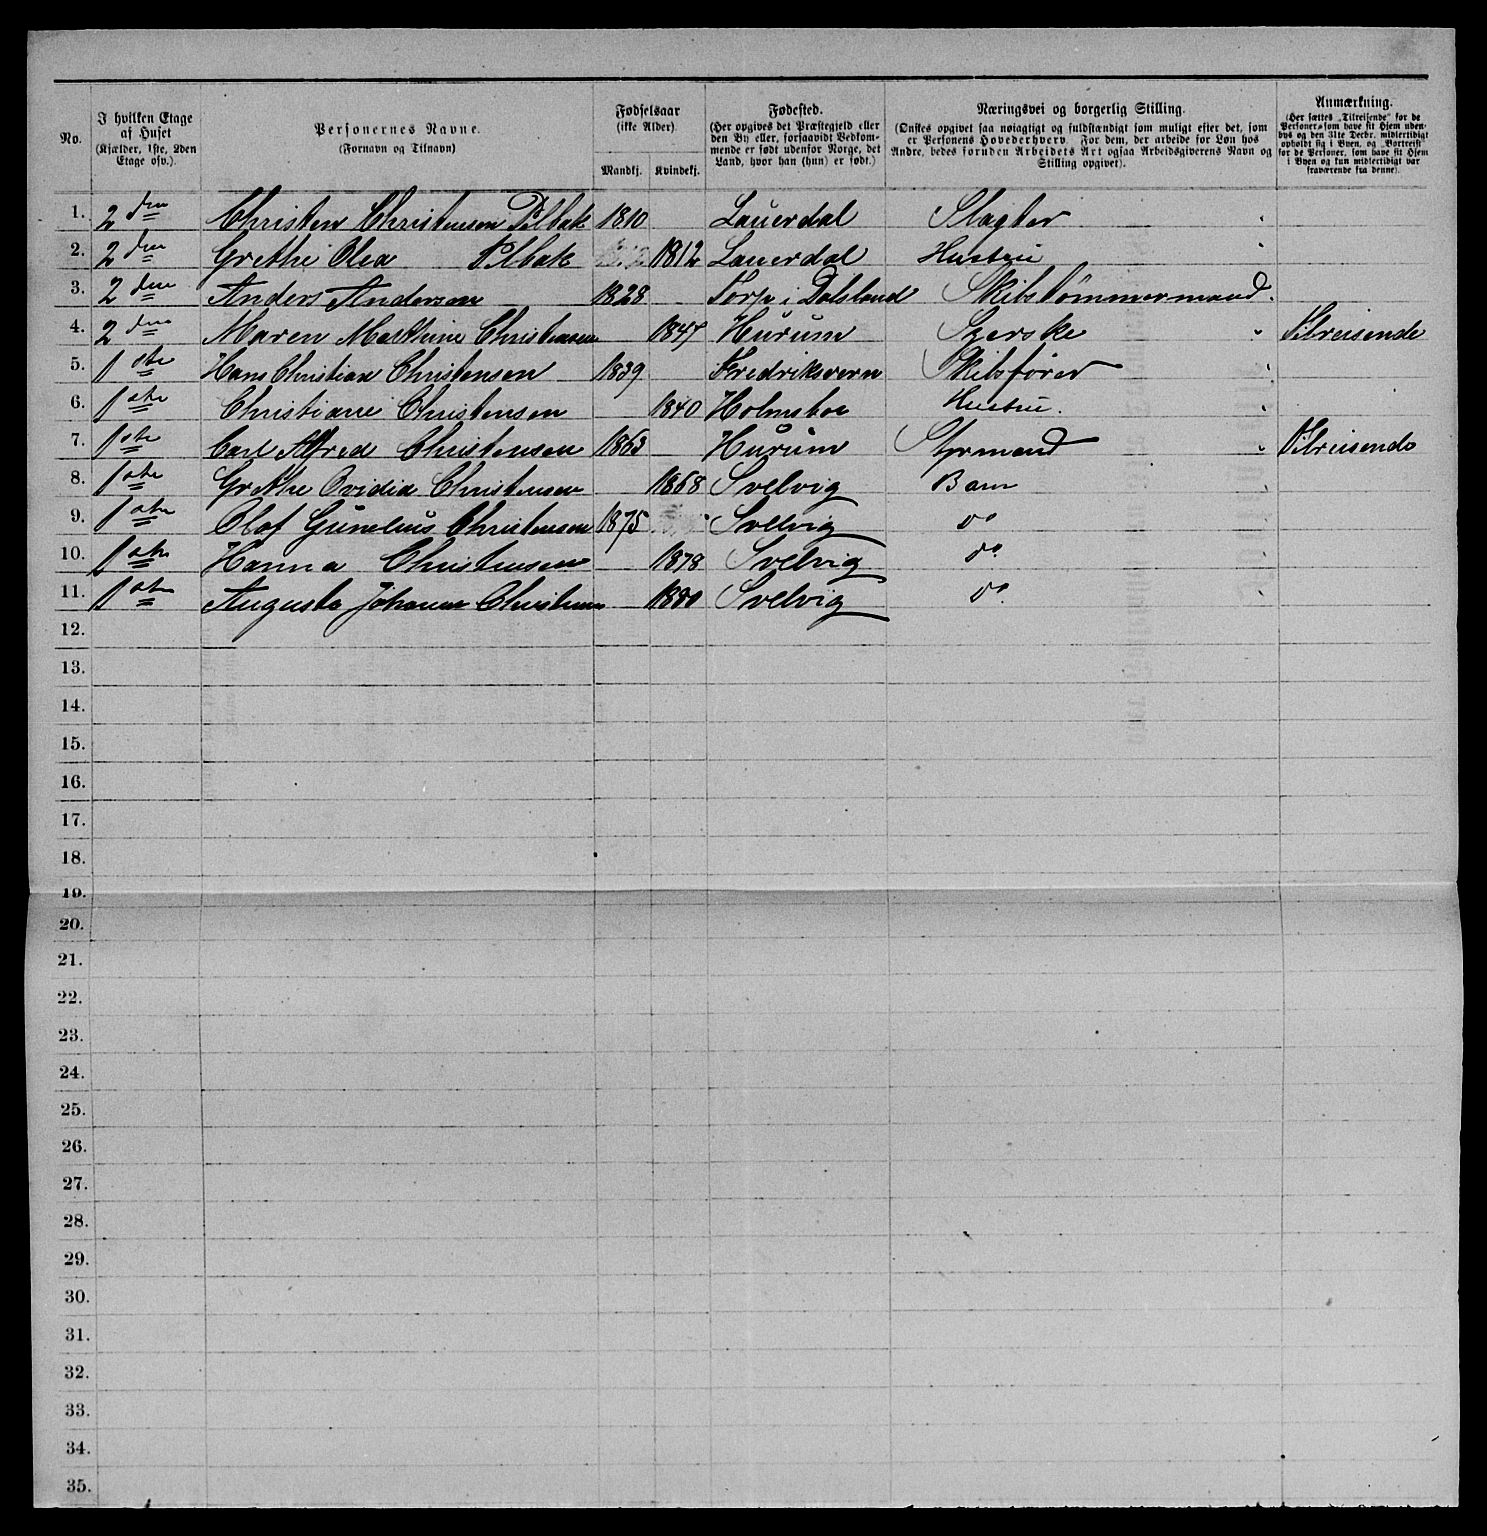 No. I hvilken Etage af Huset (Kjælder, 1ste, 2den Etage osv.). Personernes Navne. (Fornavn og Tilnavn) Fødselsaar (ikke Alder) Mandkj. Kvindekj. Fødested. (Her opgives det Præstegjeld eller den By eller, forsaavidt Vedkommende er født udenfor Norge, det Land, hvor han (hun) er født.) Næringsvei og borgerlig Stilling. (Ønskes opgivet saa nøiagtigt og fuldstændigt som muligt efter det, som er Personens Hovederhverv. For dem, der arbeide for Løn hos Andre, bedes foruden Arbeidets Art ogsaa Arbeidsgiverens Navn og Stilling opgivet). Anmærkning. (Her sættes „Tilreisende“ for de Personer som have sit Hjem udenbys og den 31te Decbr. midlertidigt opholdt sig i Byen, og „Bortreist“ for de Personer, som have sit Hjem i Byen og kun midlertidigt var fraværende fra denne).
1. 2den Christen Christensen Pilbak 1810 Lauerdal Slagter
2. 2den Grethe Olea Pilbak 1812 Lauerdal Hustru
3. 2den Anders Andersen 1828 Torp i Dalsland Skibstømmermand.
4. 2den Maren Mathine Christensen 1847 Hurum Syerske Tilreisende
5. 1ste Hans Christian Christensen 1839 Fredriksvern Skibsfører
6. 1ste Christiane Christensen 1840 Holmsboe Hustru.
7. 1ste Carl Alfred Christensen 1863 Hurum Styrmand Tilreisende
8. 1ste Grethe Ovidia Christensen 1868 Svelvig Barn
9. 1ste Olof Christensen 1875 Svelvig do
10. 1ste Hanna Christensen 1878 Svelvig do
11. 1ste Augusta Johanne Christensen 1880 Svelvig do
12.
13.
14.
15.
16.
17.
18.
19.
20.
21.
22.
23.
24.
25.
26.
27.
28.
29.
30.
31.
32.
33.
34.
35.